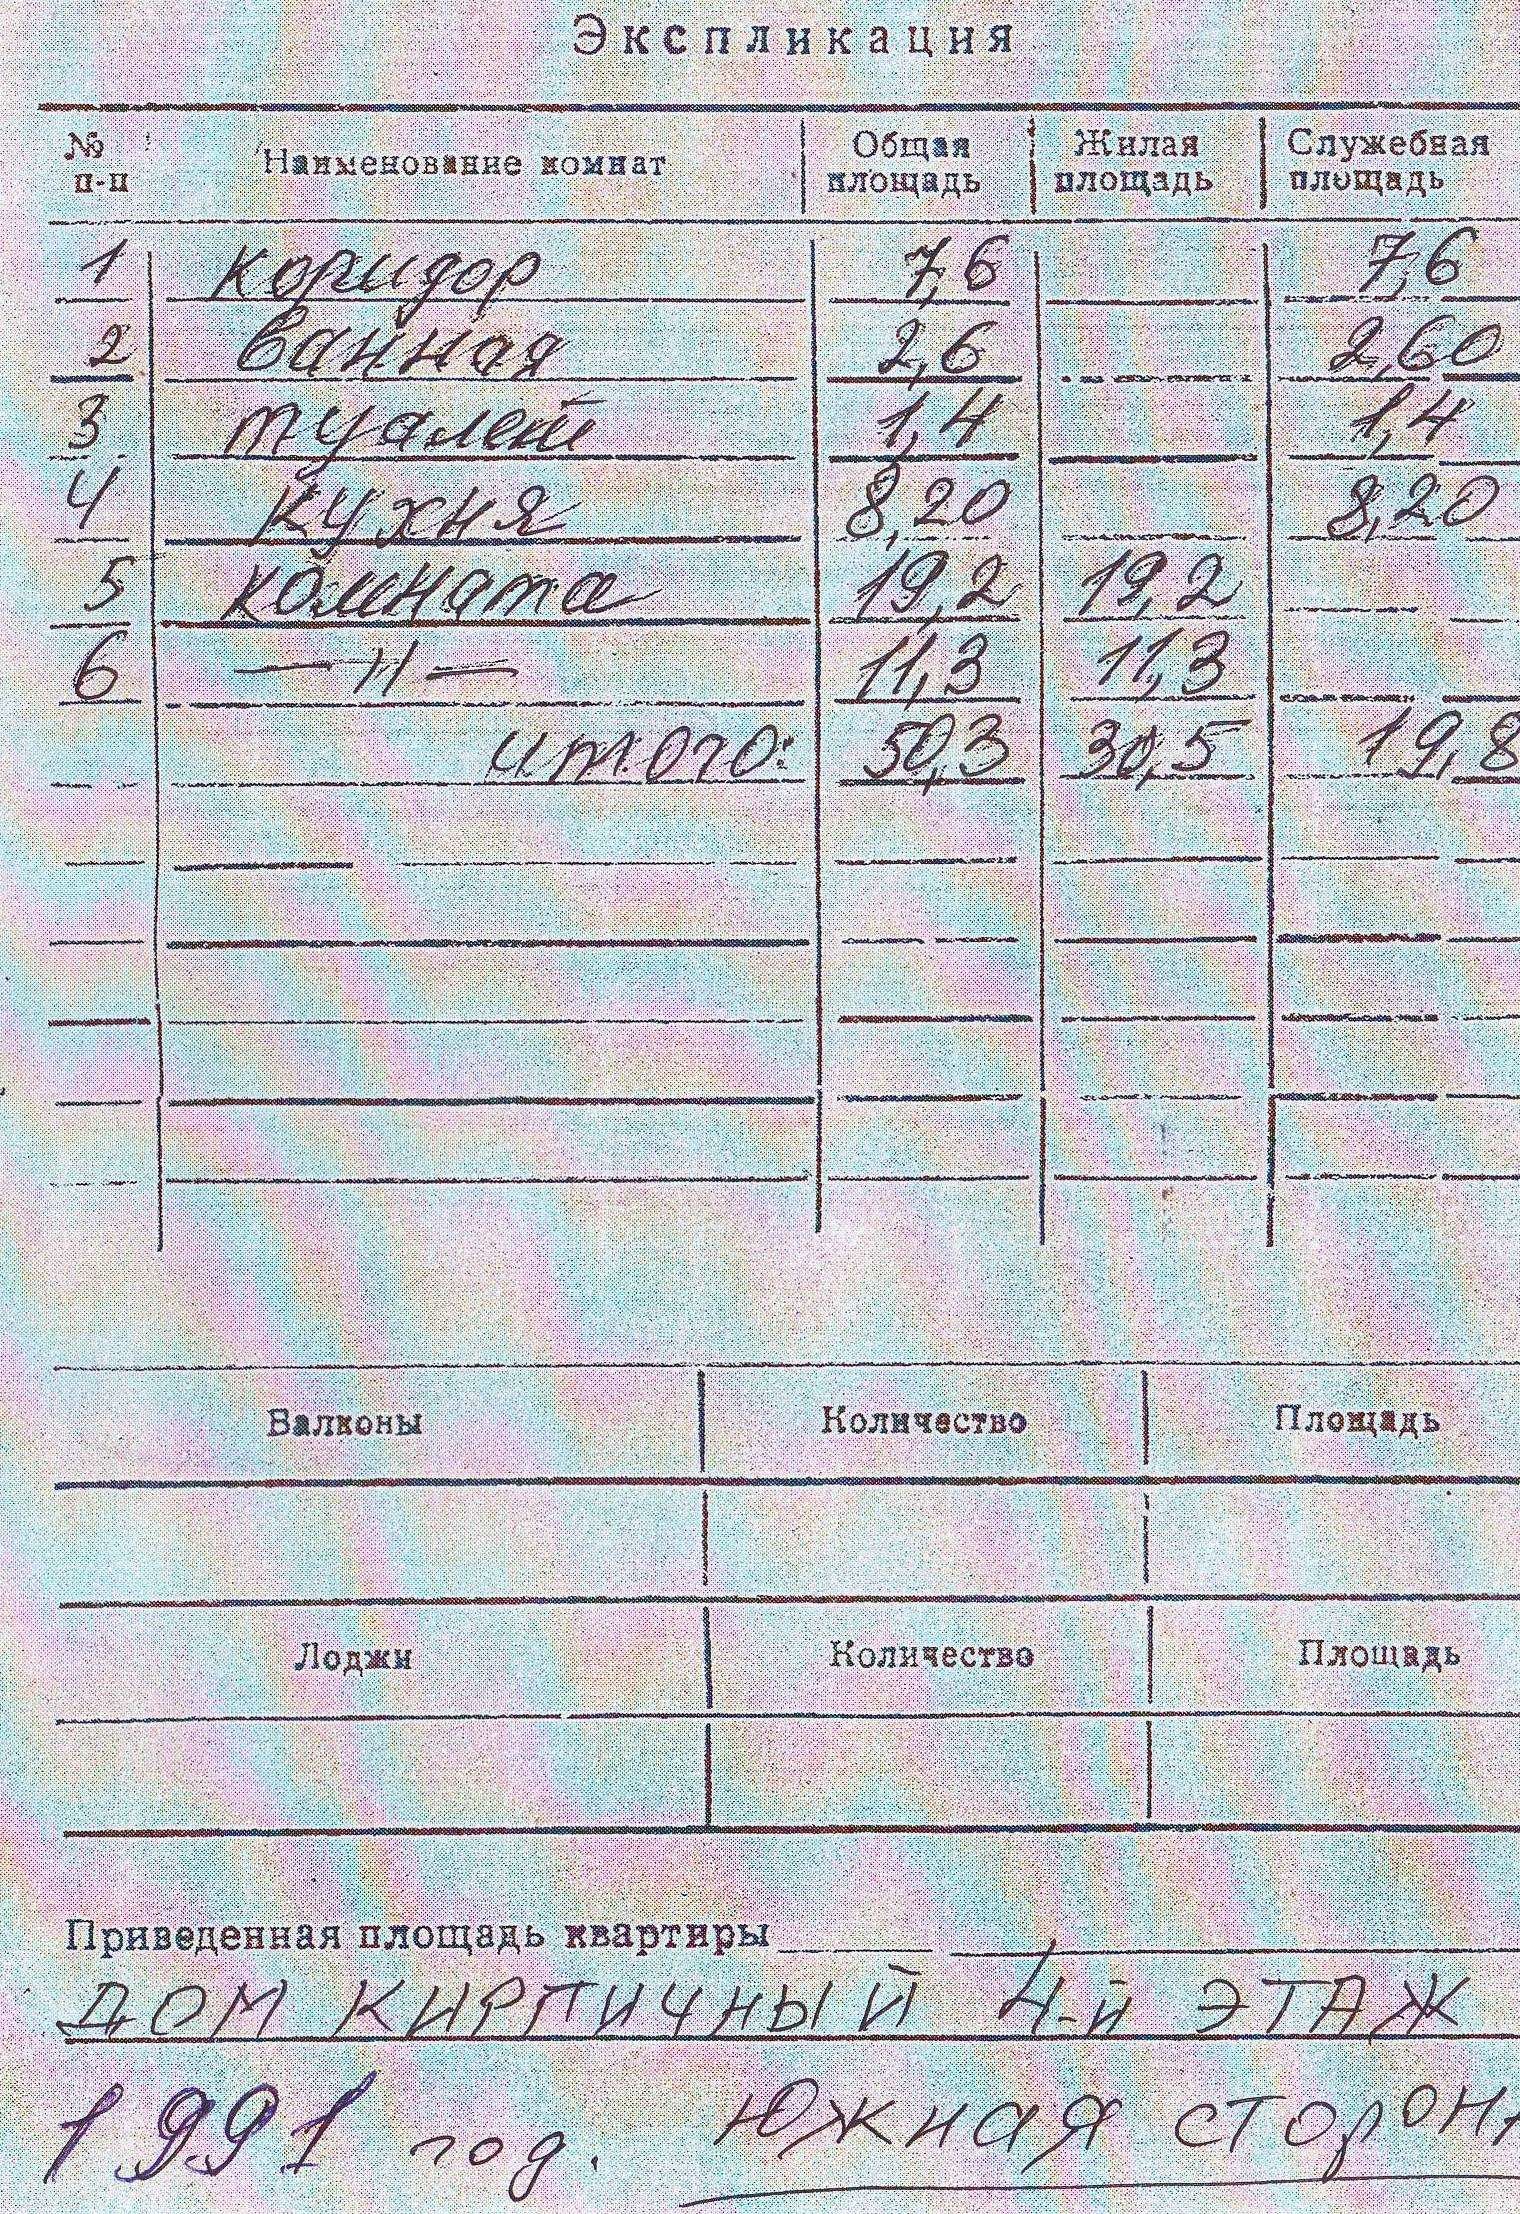 Экспликация
№ п-п Наименование комнат Общая площадь Жилая площадь Служебная площадь
1 коридор 7,6 7,6
2 ванная 2,6 2,60
3 туалет 1,4 1,4
4 кухня 8,20 8,20
5 комната 19,2 19,2
6 —"— 11,3 11,3
итого: 50,3 30,5 19,8
Балконы Количество Площадь
Лоджи Количество Площадь
Приведенная площадь квартиры
ДОМ КИРПИЧНЫЙ 4-й ЭТАЖ
1991 год. Южная сторон